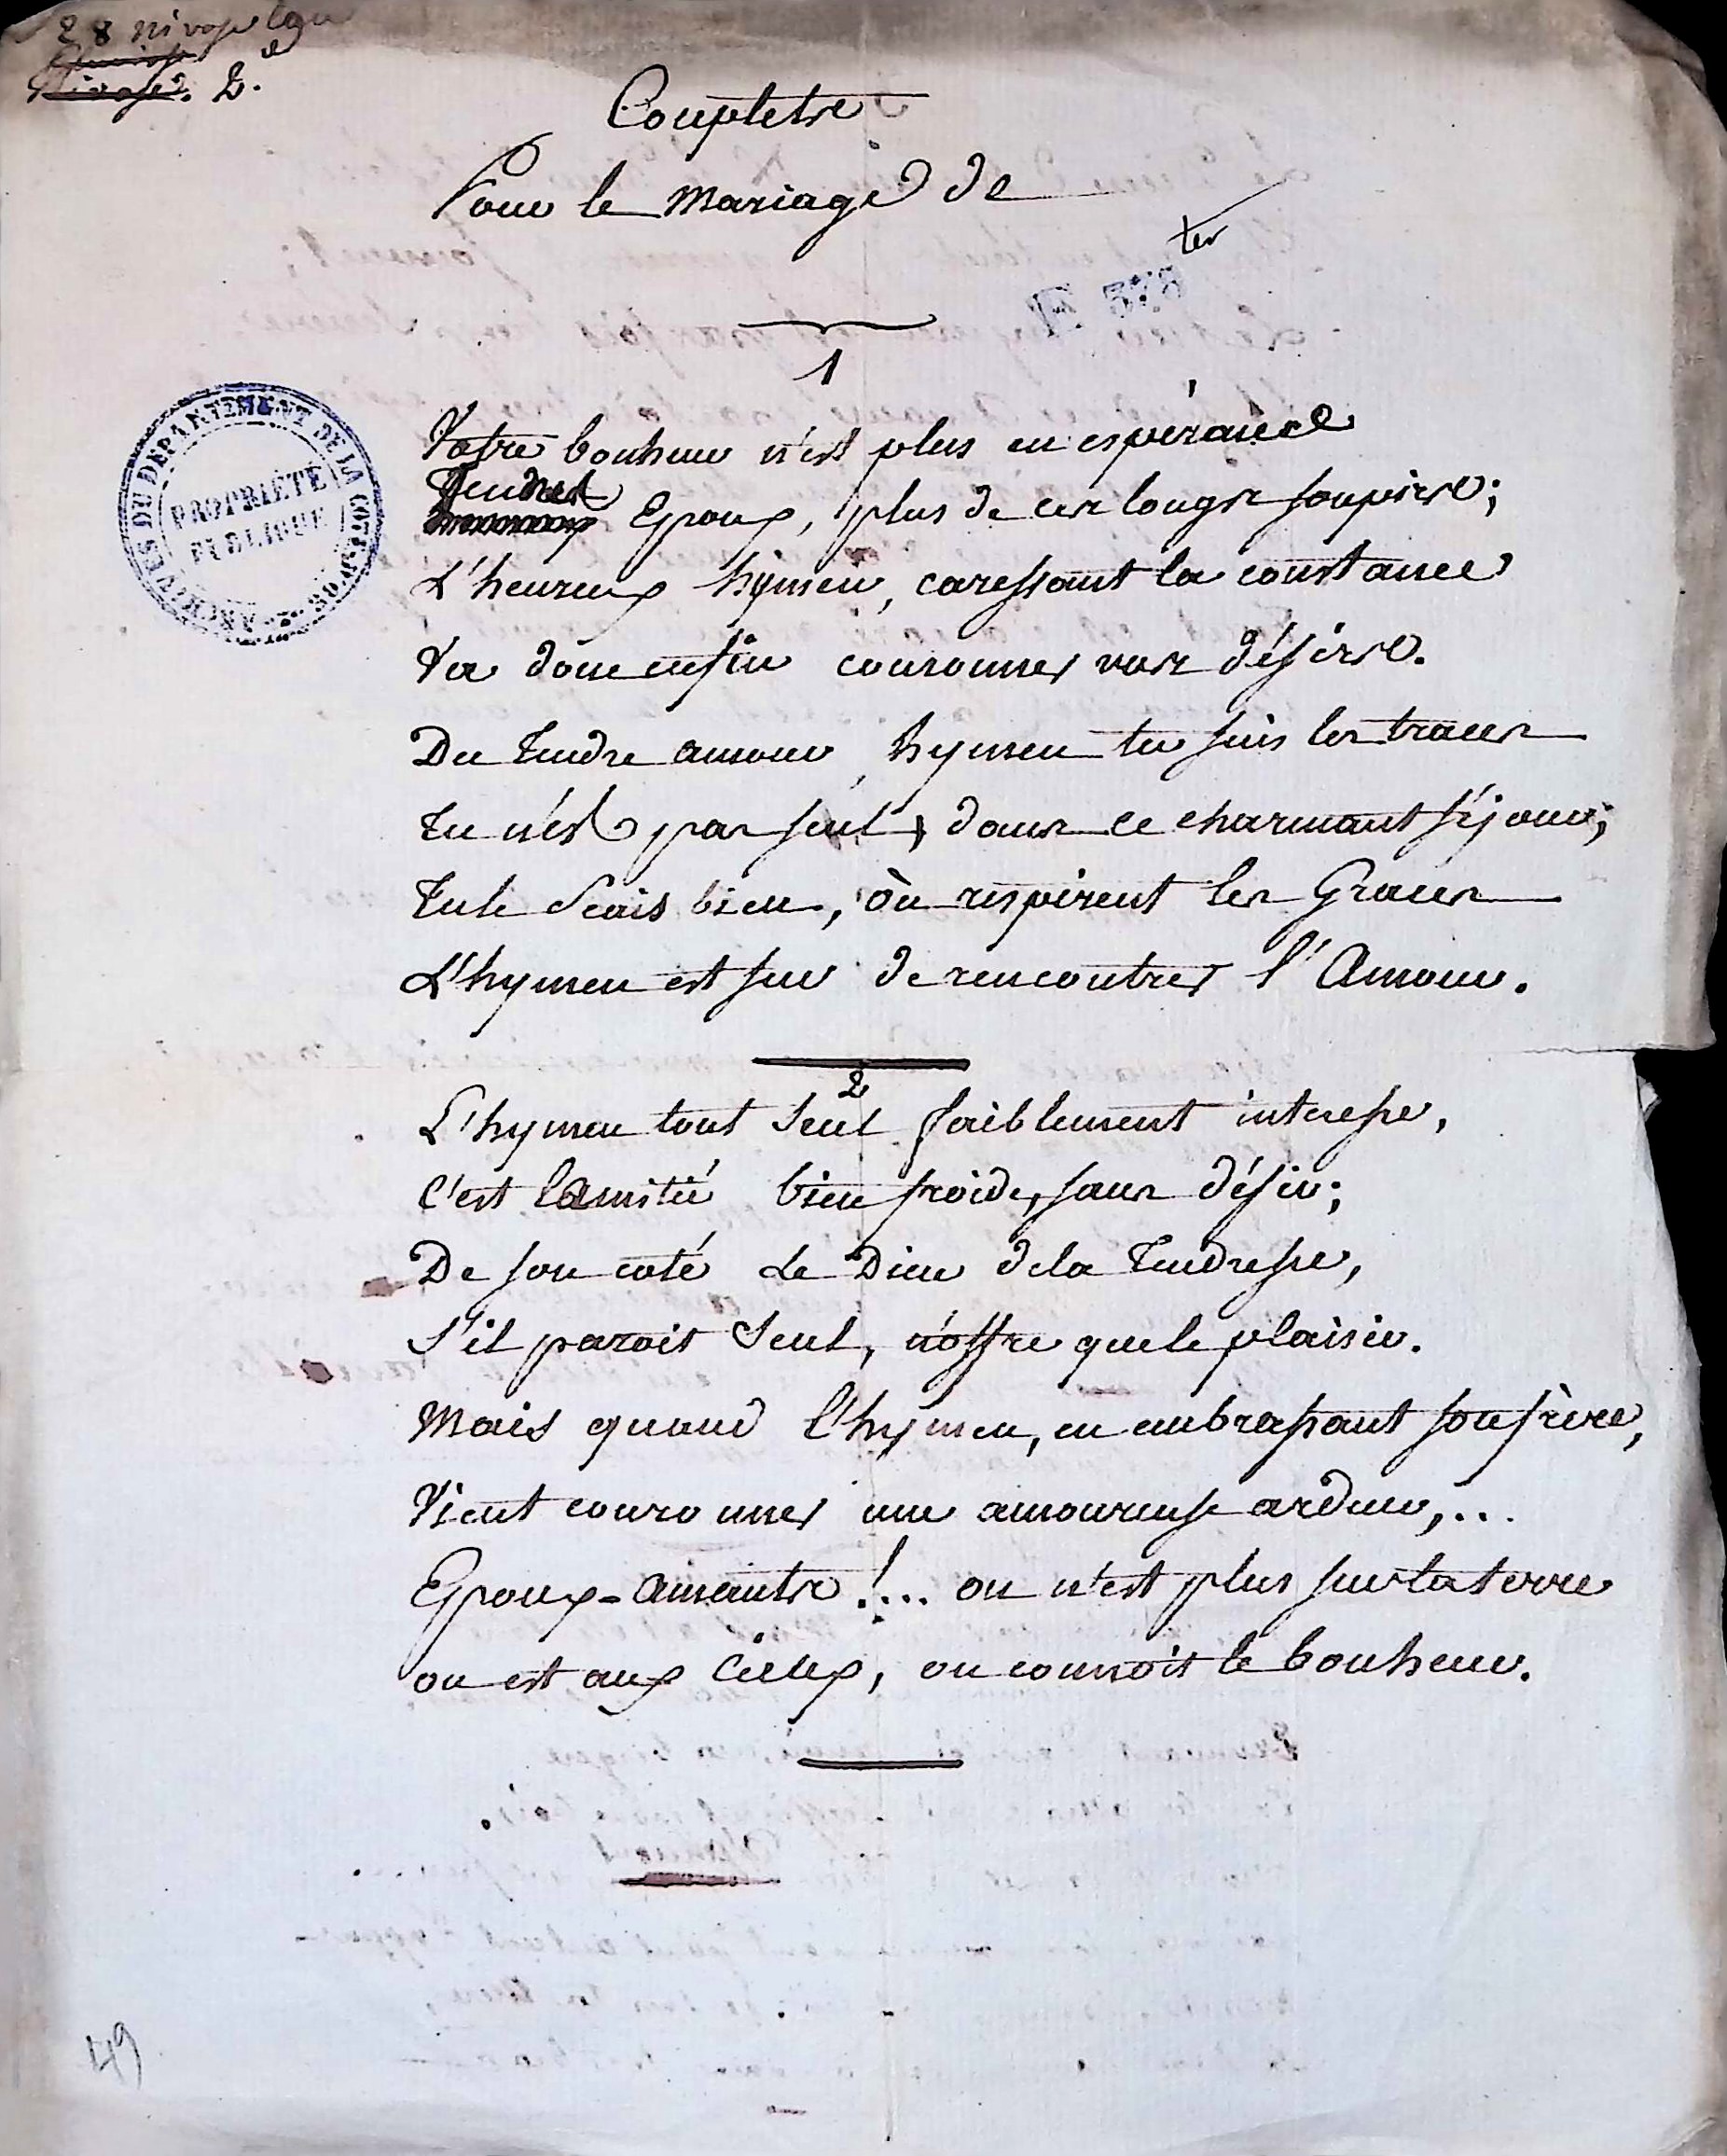 28 nivose l'an
2.e
Couplets
Pour le mariage de
ter
1
Votre bonheur n'est plus en espérance
Tendres
Epoux, plus de ces longs soupirs;
L'heureux hÿmen, caressant la constance
Va donc enfin couronner vos désirs.
Du tendre amour, hymen tu suis les traces
tu n'es pas seul, dans ce charmant séjour;
tu le scais bien, où respirent les Graces
L'hymen est sur de rencontrer l'Amour.
2
L'hymen tout seul faiblement interesse,
C'est l'amitié bien froide, sans désir;
De son coté Le Dieu dela tendresse,
S'il parois seul, n'offre que le plaisir.
Mais quand l'hÿmen, en embrassant son frère,
Vient couronner une amoureuse ardeur,...
Epoux-amants!... on n'est plus sur la terre
on est aux Cieux, on connoit le bonheur.
ARCHIVES DU DEPARTEMENT DE LA COTE-D'OR
PROPRIÉTÉ
PUBLIQUE
49